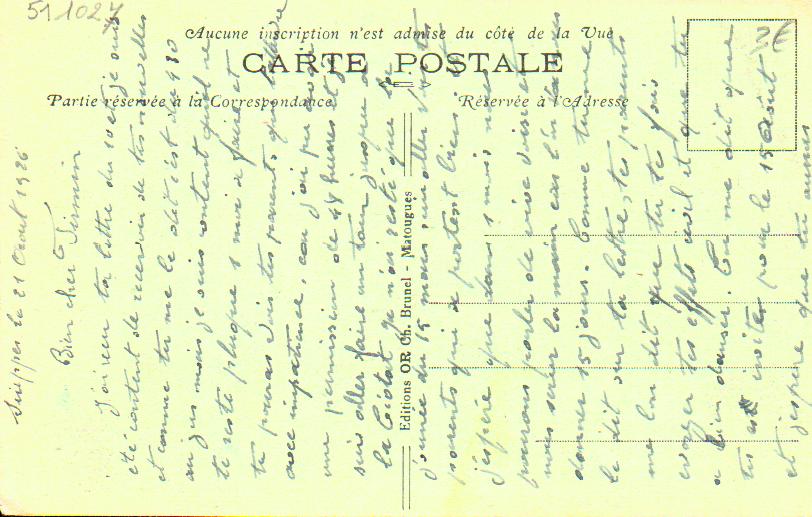 511027
Aucune inscription n'est admise du côté de la Vue
CARTE POSTALE
Partie réservée à la Correspondance
Réservée à l'Adresse
2€
Editions OR Ch. Brunel - Matougues
Suippes le 21 Août 1926
Bien cher Firmin
J'ai reçu ta lettre du 10 et je suis
été content de recevoir de tes nouvelles
et comme tu me le dit c'est des 430
au jus mais je suis content qu'il ne
te reste plus que 1 mois à faire et
tu pourras dans tes parents qui t'attende
avec impatience, car j'ai pu avoir
une permission de 48 heures et je
suis aller faire un tour jusque à
la Ciotat je n'ai resté que la
journée du 15 mais suis aller voir tes
parents qui se portent bien et
j'espère que dans 1 mois nous
pourrons parler de vive voix et
nous serrer la main car l'on
donner 15 jours. Comme tu me
le dit sur ta lettre, tes parents
me l'on dit que tu te fais
envoyer tes effets civil et que tu
a bien danser. On me dit que
tu est inviter pour le 15 Août
et j'espère que tu auras